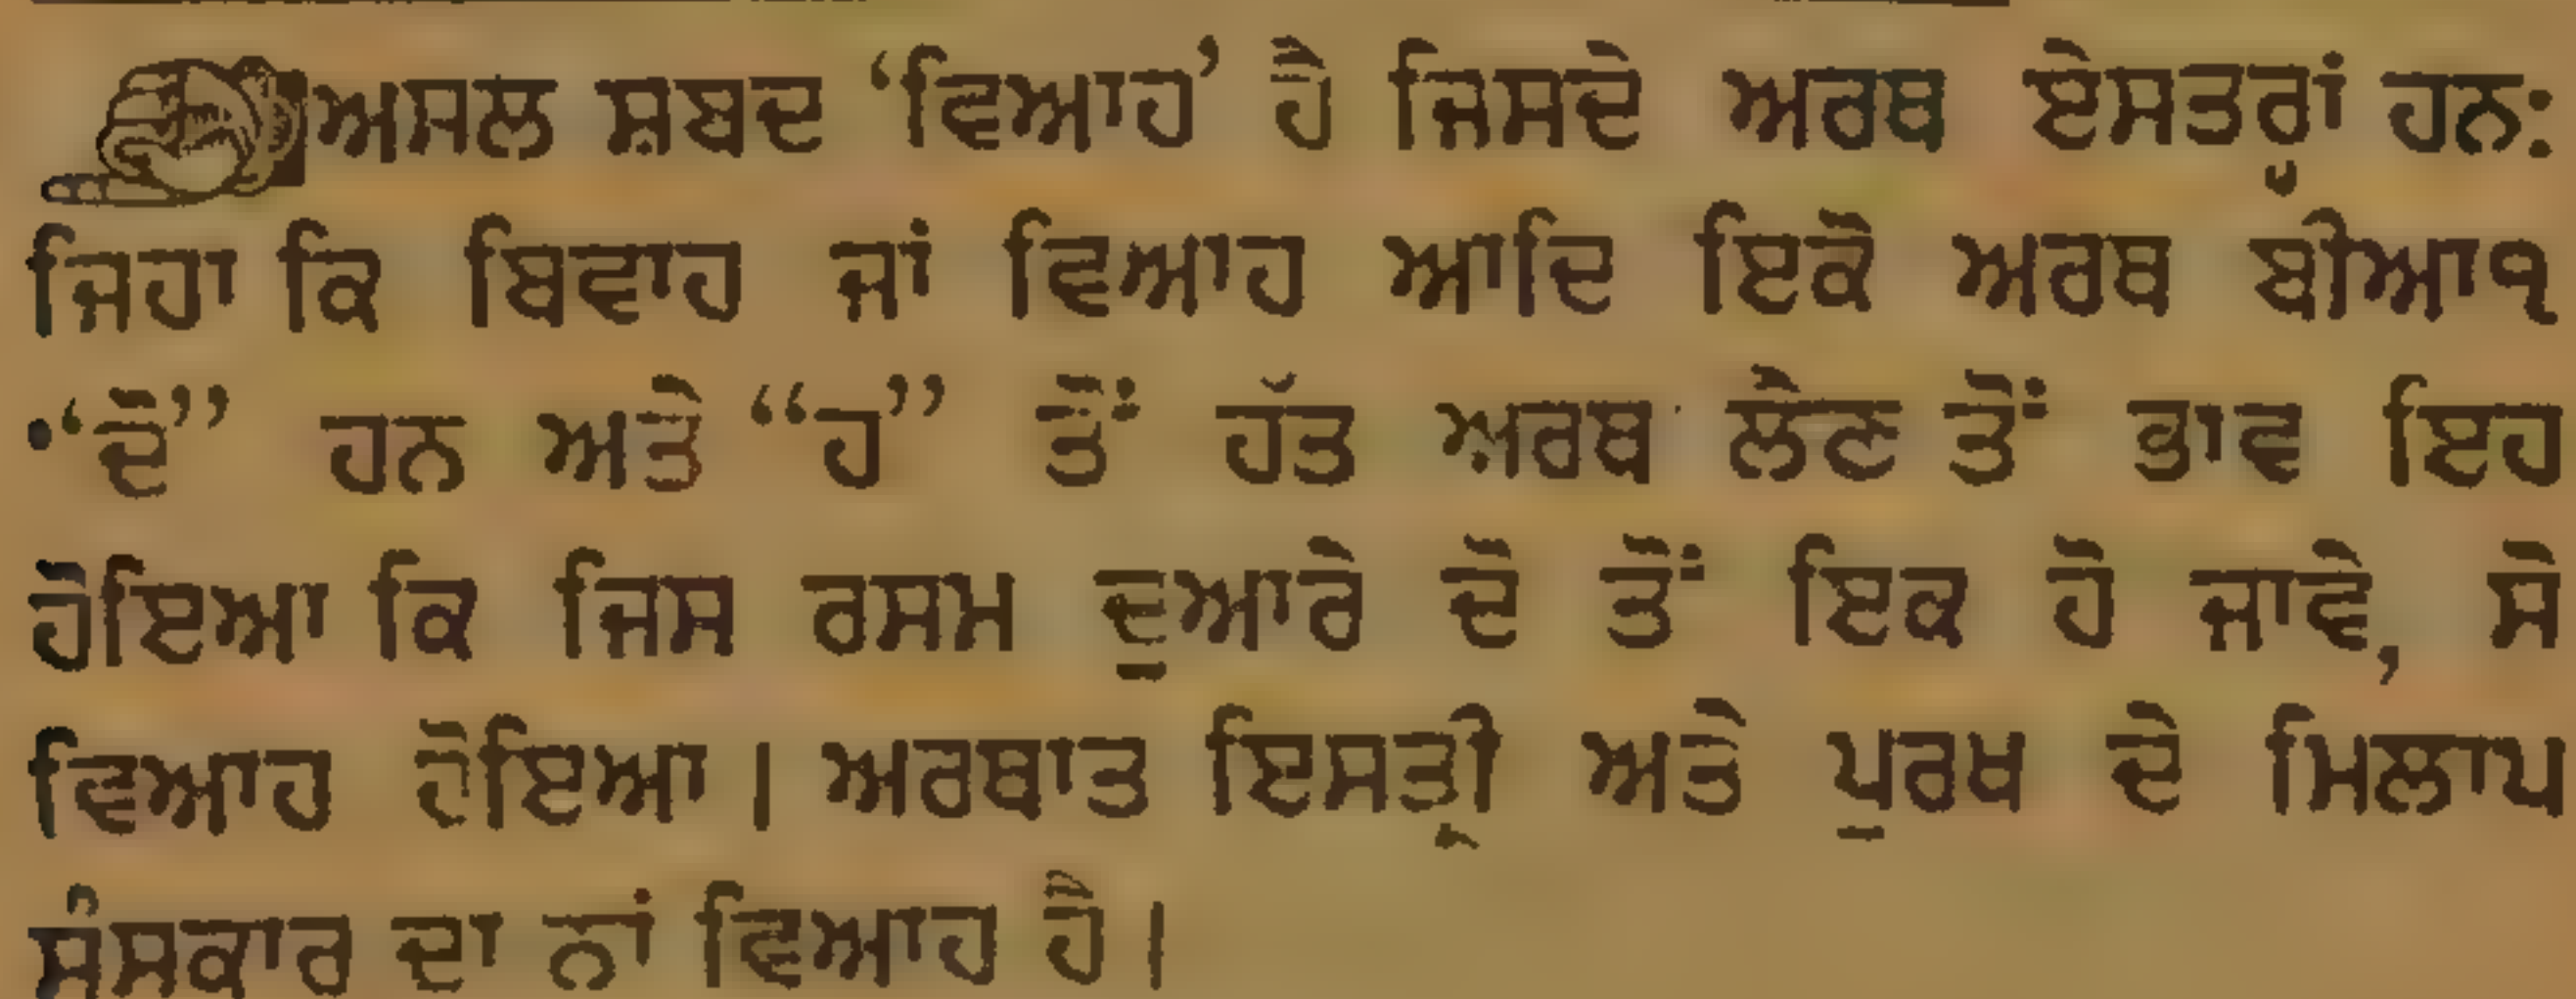 ਅਸਲ ਸ਼ਬਦ ‘ਵਿਆਹ’ ਹੈ ਜਿਸਦੇ ਅਰਥ ਏਸਤਰ੍ਹਾਂ ਹਨ:
ਜਿਹਾ ਕਿ ਬਿਵਾਹ ਜਾਂ ਵਿਆਹ ਆਦਿ ਇਕੋ ਅਰਥ ਬੀਆ੧
“ਦੋ” ਹਨ ਅਤੇ “ਹ” ਤੋਂ ਹੱਤ ਅਰਥ ਲੈਣ ਤੋਂ ਭਾਵ ਇਹ
ਹੋਇਆ ਕਿ ਜਿਸ ਰਸਮ ਦੁਆਰੇ ਦੋ ਤੋਂ ਇਕ ਹੋ ਜਾਵੇ, ਸੋ
ਵਿਆਹ ਹੋਇਆ । ਅਰਥਾਤ ਇਸਤ੍ਰੀ ਅਤੇ ਪੁਰਖ ਦੇ ਮਿਲਾਪ
ਸੰਸਕਾਰ ਦਾ ਨਾਂ ਵਿਆਹ ਹੈ ।